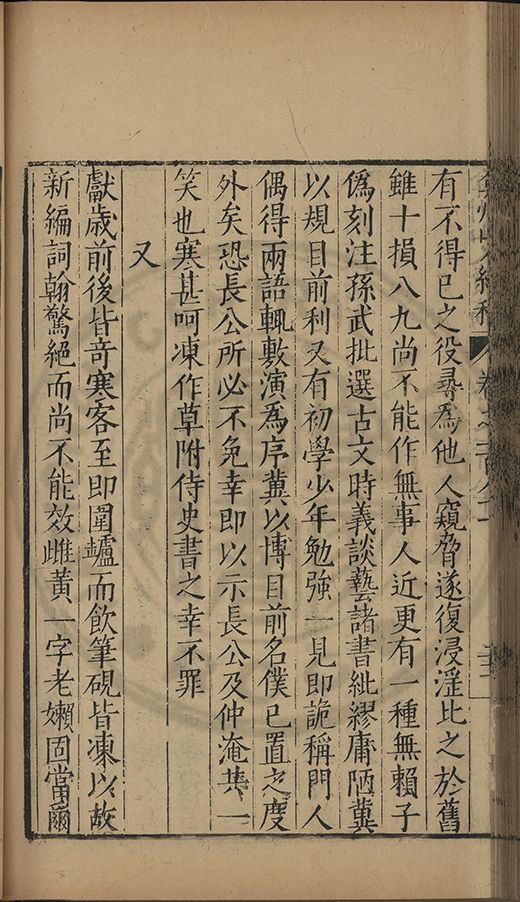 弇州山人續稿 卷之一百八十一 二十二
有不得已之役尋為他人窺脅遂復浸淫比之於舊
雖十損八九尚不能作無事人近更有一種無賴子
僞刻注孫武批選古文時義談藝諸書紕繆庸陋冀
以規目前利又有初學少年勉強一見即詭稱門人
偶得兩語輒敷演為序冀以博目前名僕已置之度
外矣恐長公所必不免幸即以示長公及仲淹共一
笑也寒甚呵凍作草附侍史書之幸不罪
又
獻歲前後皆竒寒客至即圍罏而飲筆硯皆凍以故
新編詞翰驚絕而尚不能效雌黃一字老嬾固當爾